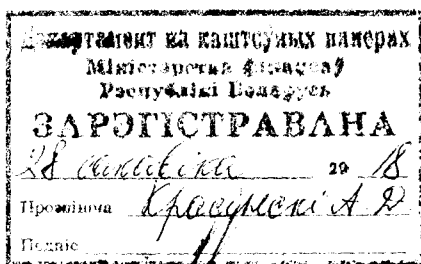 Дэпартамент па каштоўных паперах
Міністэрства фінансаў
Рэспублікі Беларусь
ЗАРЭГІСТРАВАНА
28 сакавіка 20 18
Прозвішча А Д
Подпіс